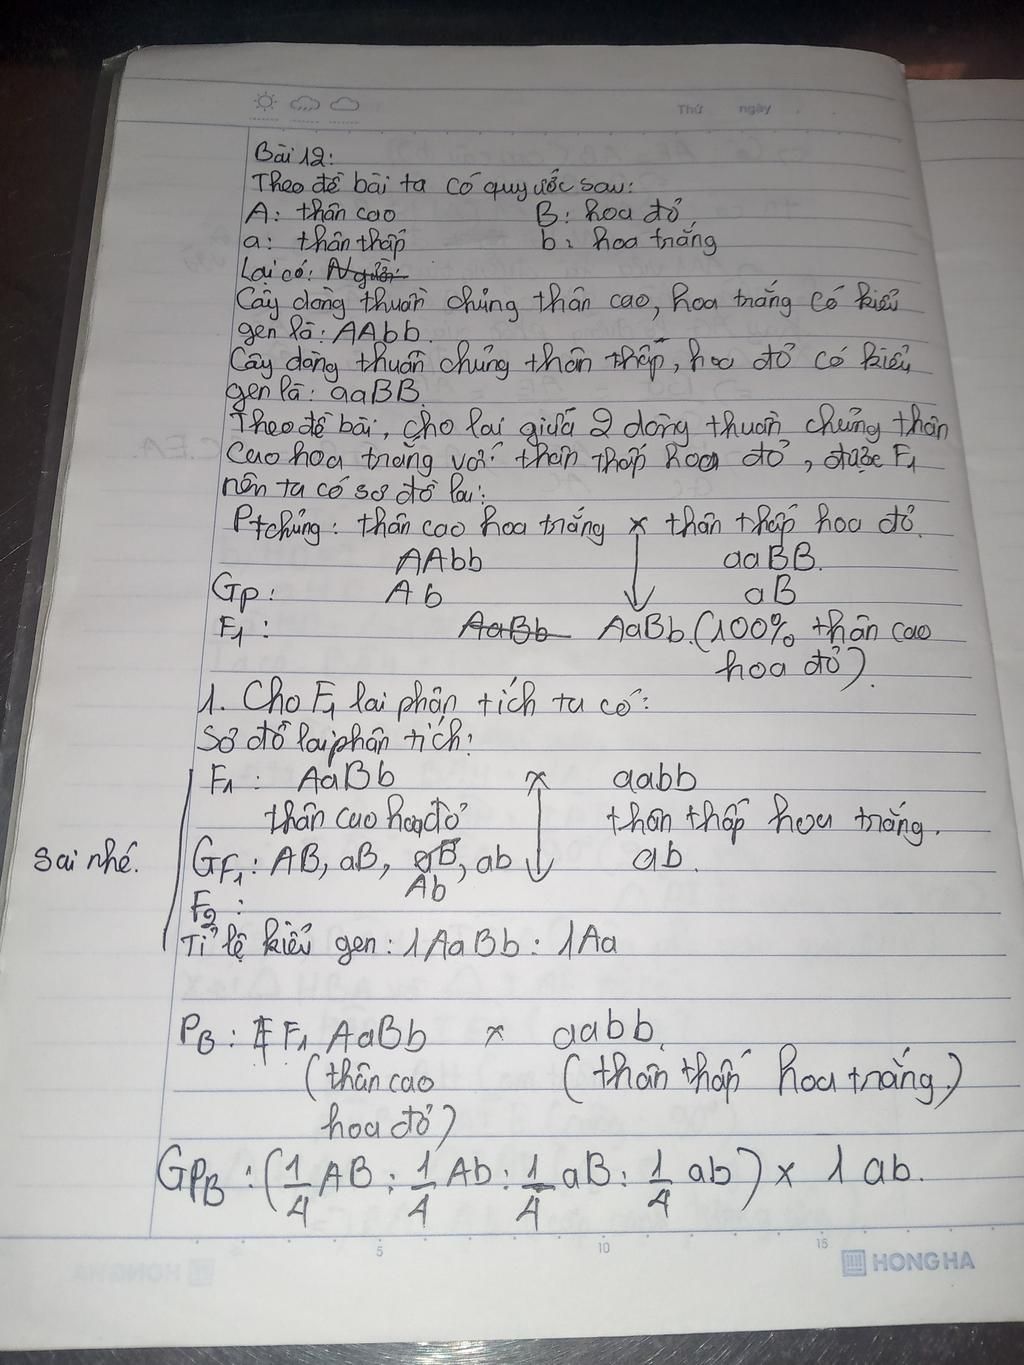 Thứ ngày
Bài 12:
Theo đề bài ta có quy ước sau:
A: thân cao B: hoa đỏ
a: thân thấp b: hoa trắng
Lại có: Người:
Cây dòng thuần chủng thân cao, hoa trắng có kiểu
gen là: AAbb.
Cây dòng thuần chủng thân thấp, hoa đỏ có kiểu
gen là: aaBB.
Theo đề bài, cho lai giữa 2 dòng thuần chủng thân
cao hoa trắng với thân thấp hoa đỏ, được F1
nên ta có sơ đồ lai:
Ptchủng: thân cao hoa trắng x thân thấp hoa đỏ.
AAbb aaBB.
Gp: Ab aB
F1: AaBb AaBb (100% thân cao
hoa đỏ).
1. Cho F1 lai phân tích ta có:
Sơ đồ lai phân tích:
F1: AaBb x aabb
thân cao hoa đỏ thân thấp hoa trắng.
sai nhé. GF1: AB, aB, aB, ab ab.
Ab
F2:
Tỉ lệ kiểu gen: 1AaBb : 1Aa
PB: F1 AaBb x aabb.
(thân cao (thân thấp hoa trắng)
hoa đỏ)
GPB: (1/4 AB : 1/4 Ab : 1/4 aB : 1/4 ab) x 1 ab.
5 10 15
HONG HA